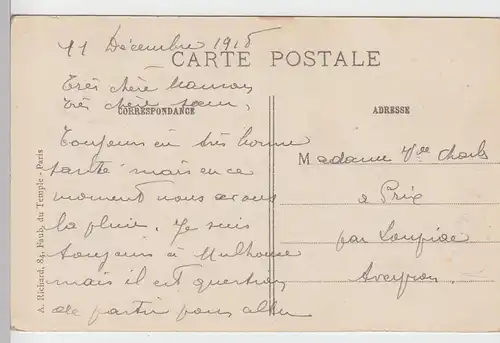 11 Décembre 1918
CARTE POSTALE
Très chère Maman
très chère sœur,
CORRESPONDANCE
Toujours en très bonne
santé mais en ce
moment nous avons
la pluie. Je suis
toujours à Mulhouse
mais il est question
de partir pour aller
ADRESSE
Madame Vve Charles
à
par Loupiac
Aveyron.
A. Richard, 84, Faub. du Temple - Paris